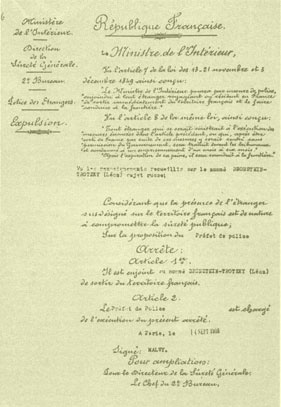 Ministère
de l'Intérieur.
Direction
de la
Sûreté Générale.
2e Bureau.
Police des Étrangers.
Expulsion.
République Française.
Le Ministre de l'Intérieur,
Vu l'article 7 de la loi des 13-21 novembre et 3
décembre 1849 ainsi conçu:
"Le Ministre de l'Intérieur pourra, par mesure de police,
enjoindre à tout étranger voyageant ou résidant en France
de sortir immédiatement du territoire français et le faire
conduire à la frontière."
Vu l'article 8 de la même loi, ainsi conçu:
"Tout étranger qui se serait soustrait à l'exécution des
mesures énoncées dans l'article précédent, ou qui, après être
sorti de France par suite de ces mesures, y serait rentré sans la
permission du Gouvernement, sera traduit devant les tribunaux
et condamné à un emprisonnement d'un mois à six mois.
"Après l'expiration de sa peine, il sera conduit à la frontière."
Vu les renseignements recueillis sur le nommé BRONSTEIN-
TROTSKY (Léon) sujet russe;
Considérant que la présence de l'étranger
susdésigné sur le territoire français est de nature
à compromettre la sûreté publique;
Sur la proposition du Préfet de police
Arrête:
Article 1er.
Il est enjoint au nommé BRONSTEIN-TROTSKY (Léon)
de sortir du territoire français.
Article 2.
Le Préfet de Police est chargé
de l'exécution du présent arrêté.
A Paris, le SEPT 1916
Signé: MALVY.
Pour ampliation:
Le Directeur de la Sûreté Générale:
Le Chef du 2e Bureau.